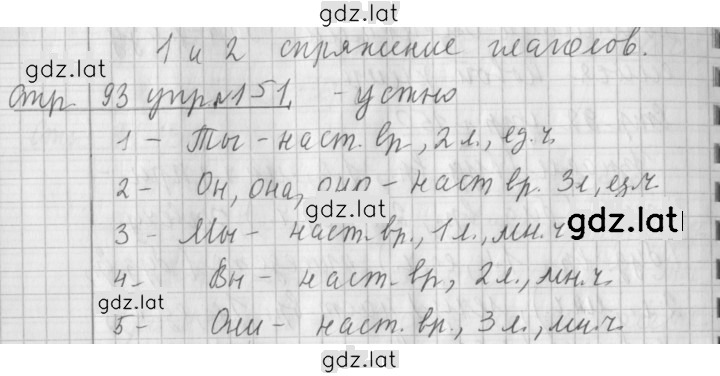 gdz.lat
1 и 2 спряжение глаголов.
gdz.lat
стр 93 упр №151. - устно
1 - Ты - наст. вр, 2 л., ед.ч.
2 - Он, она, оно - наст вр. 3л, ед.ч.
gdz.lat
gdz.lat
3 - Мы - наст. вр., 1 л., мн.ч
4 - Вы - наст. вр, 2 л., мн.ч.
gdz.lat
5 - Они - наст. вр., 3 л., мн.ч.
gdz.lat